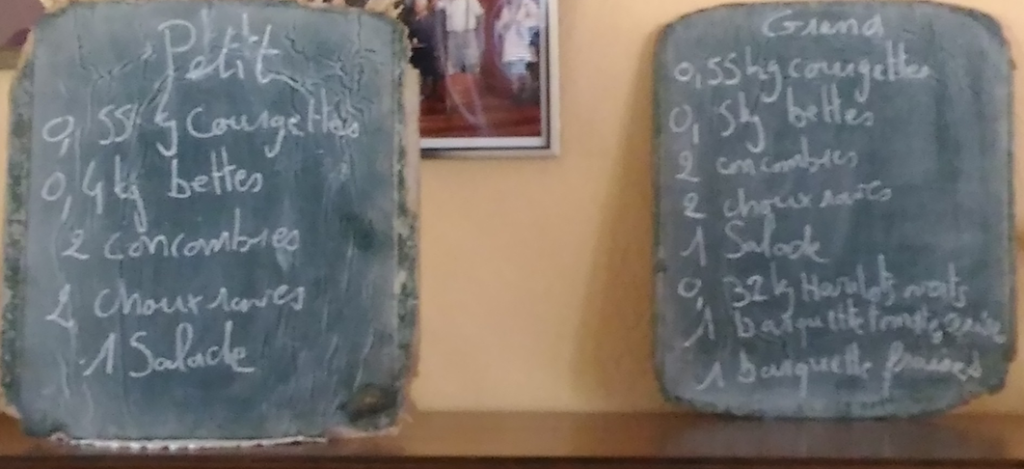 Petit
0,55 kg courgettes
0,4 kg bettes
2 concombres
2 choux raves
1 Salade
Grand
0,55 kg courgettes
0,5kg bettes
2 concombres
2 choux raves
1 Salade
0,32kg Haricots verts
1 barquette tomates cerise
1 barquette fraises